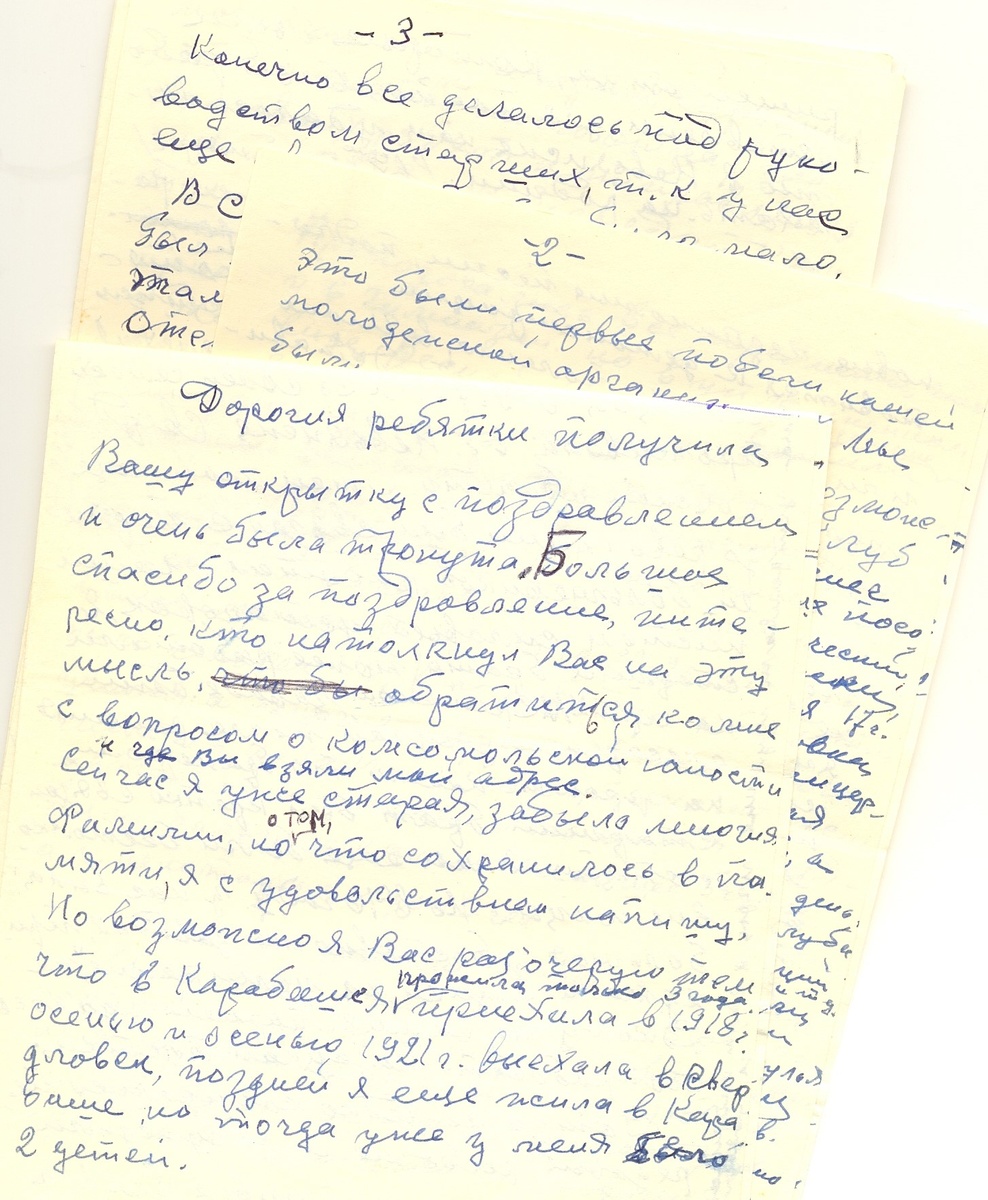 - 3 -
Конечно все делалось под руко-
водством старших, т.к у нас
еще
мало.
В С
был
этал
Оте
- 2 -
Это были первые победы нашей
молодежной органи
были
Мы
луб
нес
посо
я 17 г.
ицер-
ия
, а
день
луба
Дорогия ребятки получила
Вашу открытку с поздравлением
и очень была тронута. Большое
спасибо за поздравление, инте-
ресно, кто натолкнул Вас на эту
мысль, что бы обратиться ко мне
с вопросом о комсомольской юности
и где Вы взяли мой адрес.
Сейчас я уже старая, забыла многия
о том,
Фамилии, но что сохранилось в па-
мяти, я с удовольствием напишу,
Но возможно я Вас разочерую тем
прожила только 3 года.
что в Карабаше я приехала в 1918 г.
осенью и осенью 1921 г. выехала в Сверд-
дловск, поздней я еще жила в Кара-
баше, но тогда уже у меня было
2 детей.